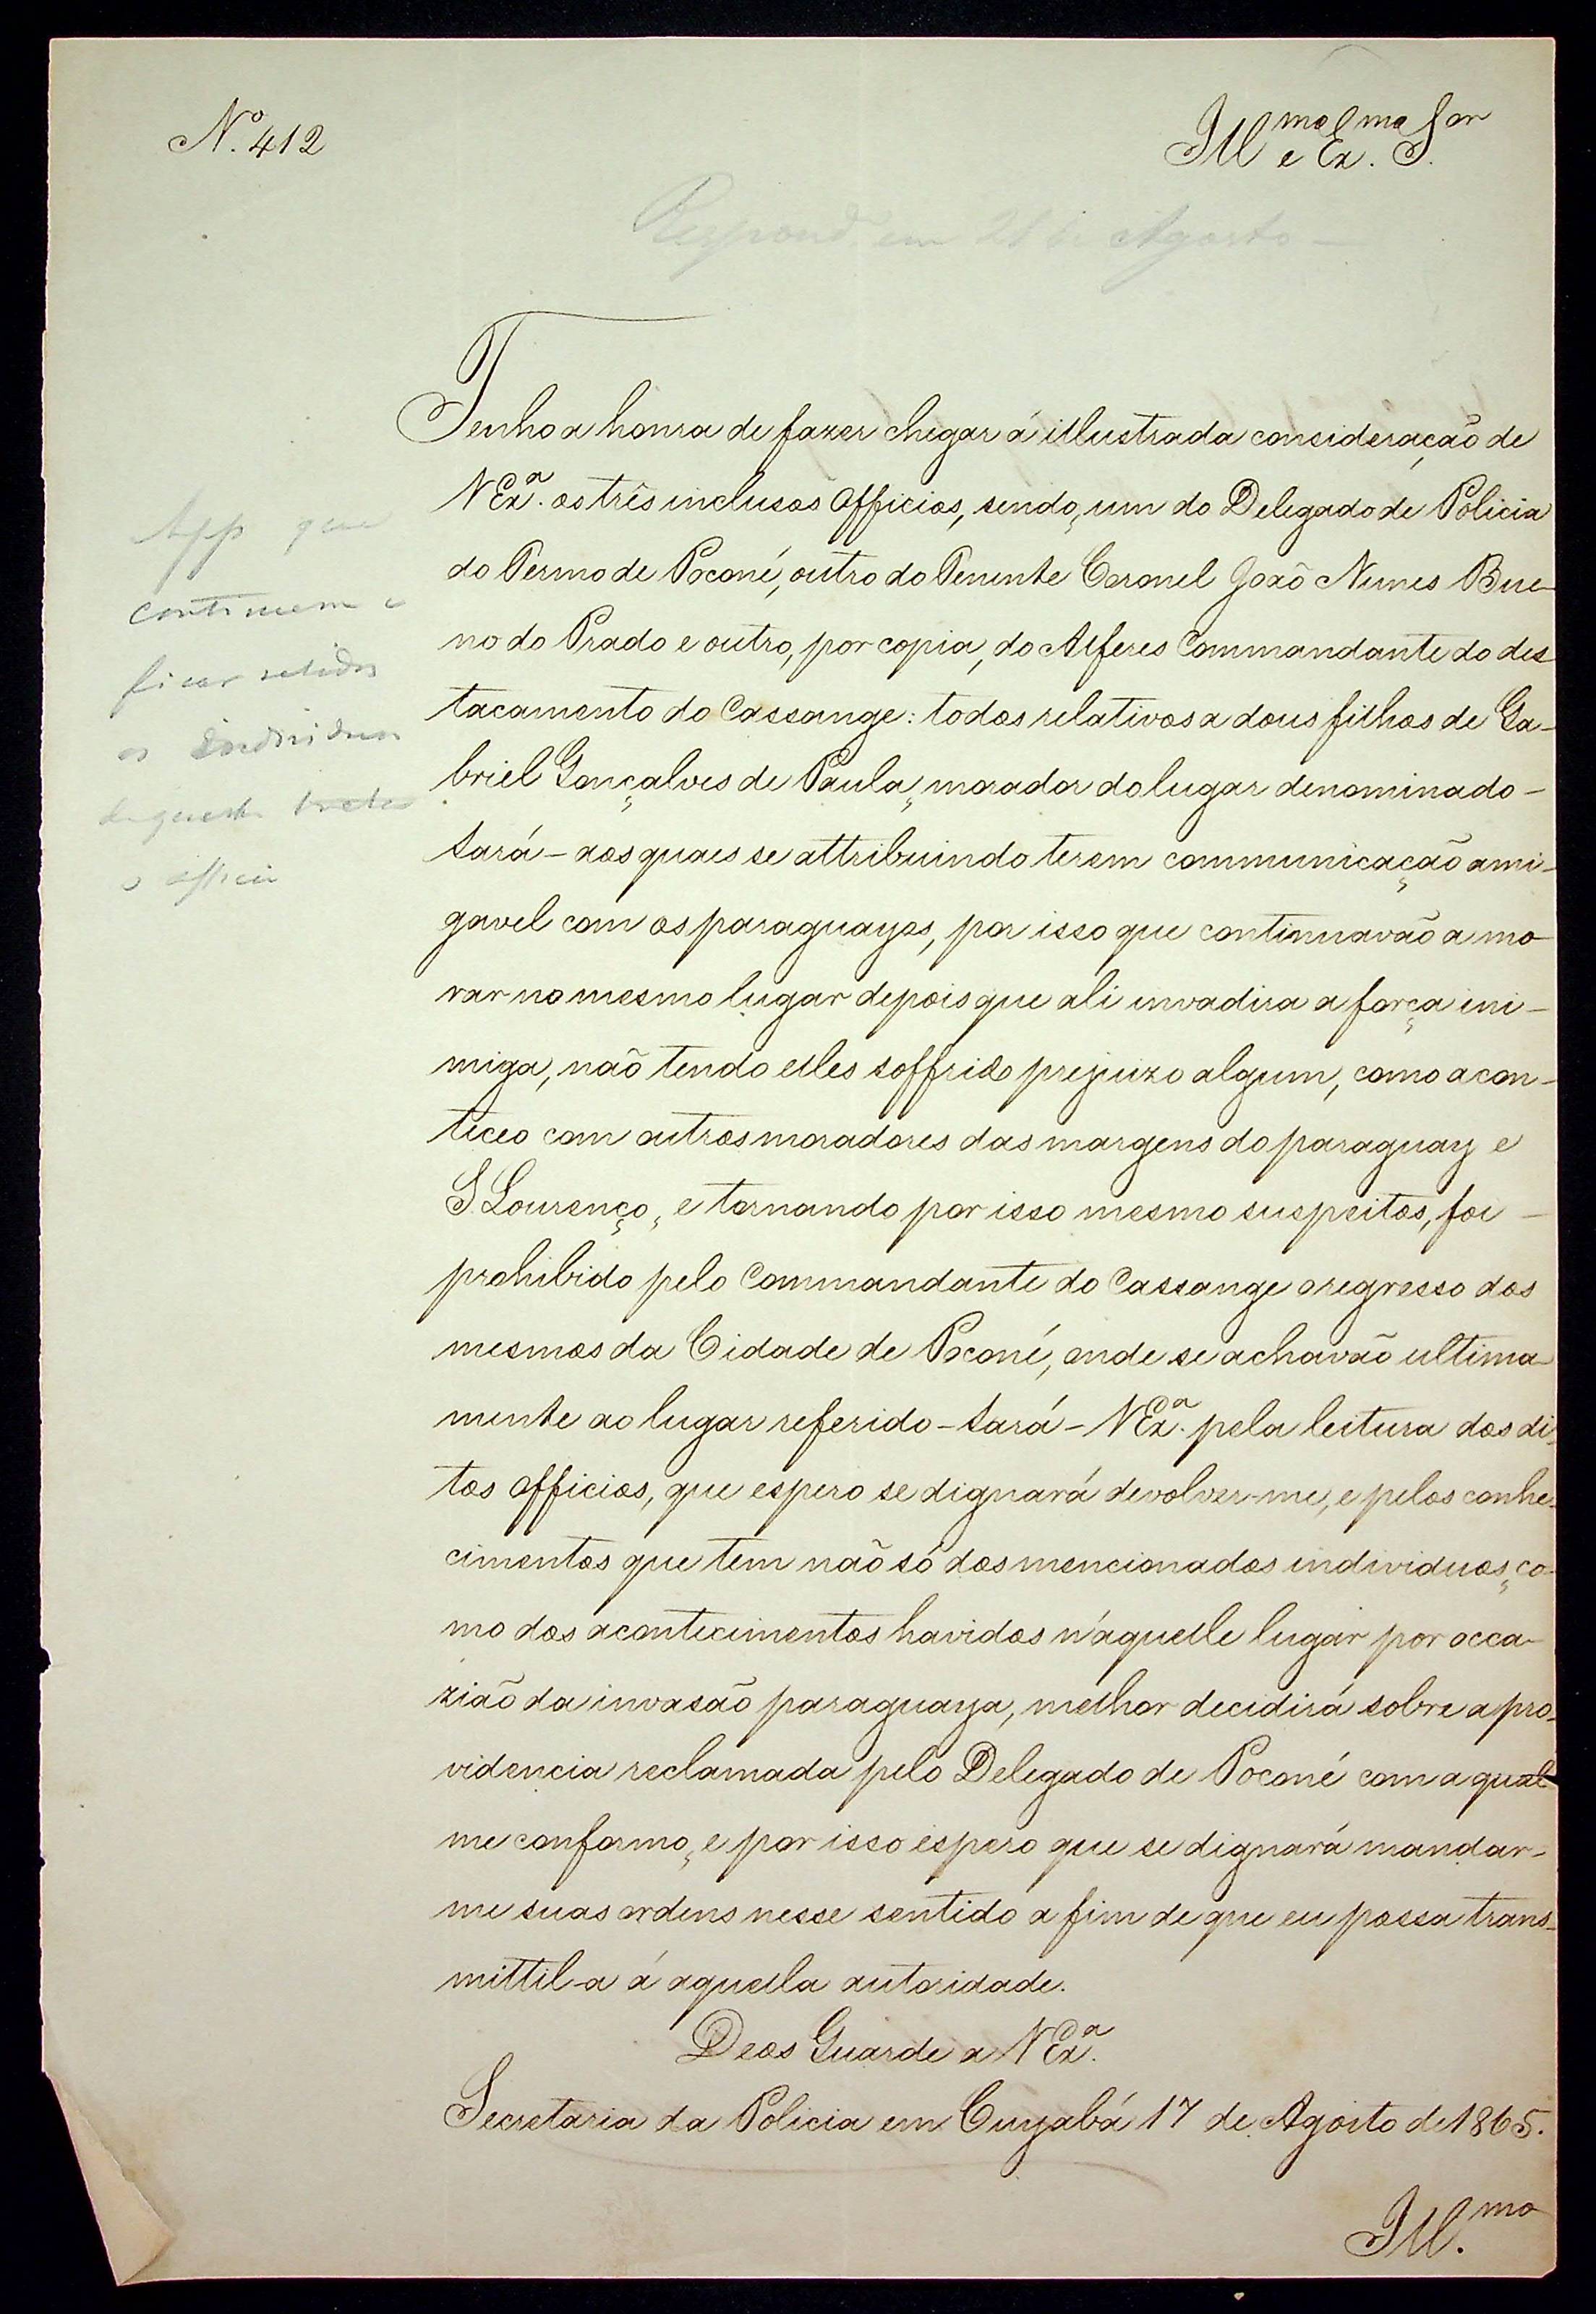 Nº 412
Ill.mo e Ex.mo Sor.
Respond. em 21 de Agosto –
Tenho a honra de fazer chegar á illustrada consideração de
V Exª. os três inclusos officios, sendo, um do Delegado de Policia
do Termo de Poconé, outro do Tenente Coronel João Nunes Bue-
no do Prado e outro, por copia, do Alferes Commandante do des
tacamento do Cassange: todos relativos a dous filhos de Ga-
briel Gonçalves de Paula, morador do lugar denominado –
Sará – aos quaes se attribuindo terem communicação ami-
gavel com os paraguayos, por isso que continuavão a mo
rar no mesmo lugar depois que ali invadira a força ini-
miga, não tendo elles soffrido prejuizo algum, como acon-
teceo com outros moradores das margens do paraguay e
S. Lourenço, e tornando por isso mesmo suspeitos, foi –
prohibido pelo Commandante do Cassange o regresso dos
mesmos da Cidade de Poconé, onde se achavão ultima-
mente ao lugar referido – Sará – V Exª. pela leitura dos di-
tos officios, que espero se dignará devolver-me, e pelos conhe-
cimentos que tem não só dos mencionados individuos, co-
mo dos acontecimentos havidos n'aquelle lugar por occa-
zião da invasão paraguaya, melhor decidirá sobre a pro-
videncia reclamada pelo Delegado de Poconé com a qual
me conformo, e por isso espero que se dignará mandar-
me suas ordens nesse sentido a fim de que eu possa trans-
mittil-a á aquella autoridade.
Deos Guarde a V Exª.
Secretaria da Policia em Cuyabá 17 de Agosto de 1865.
Ill.mo
que
continuem a
ficar retidos
os individuos
de que trata
o officio